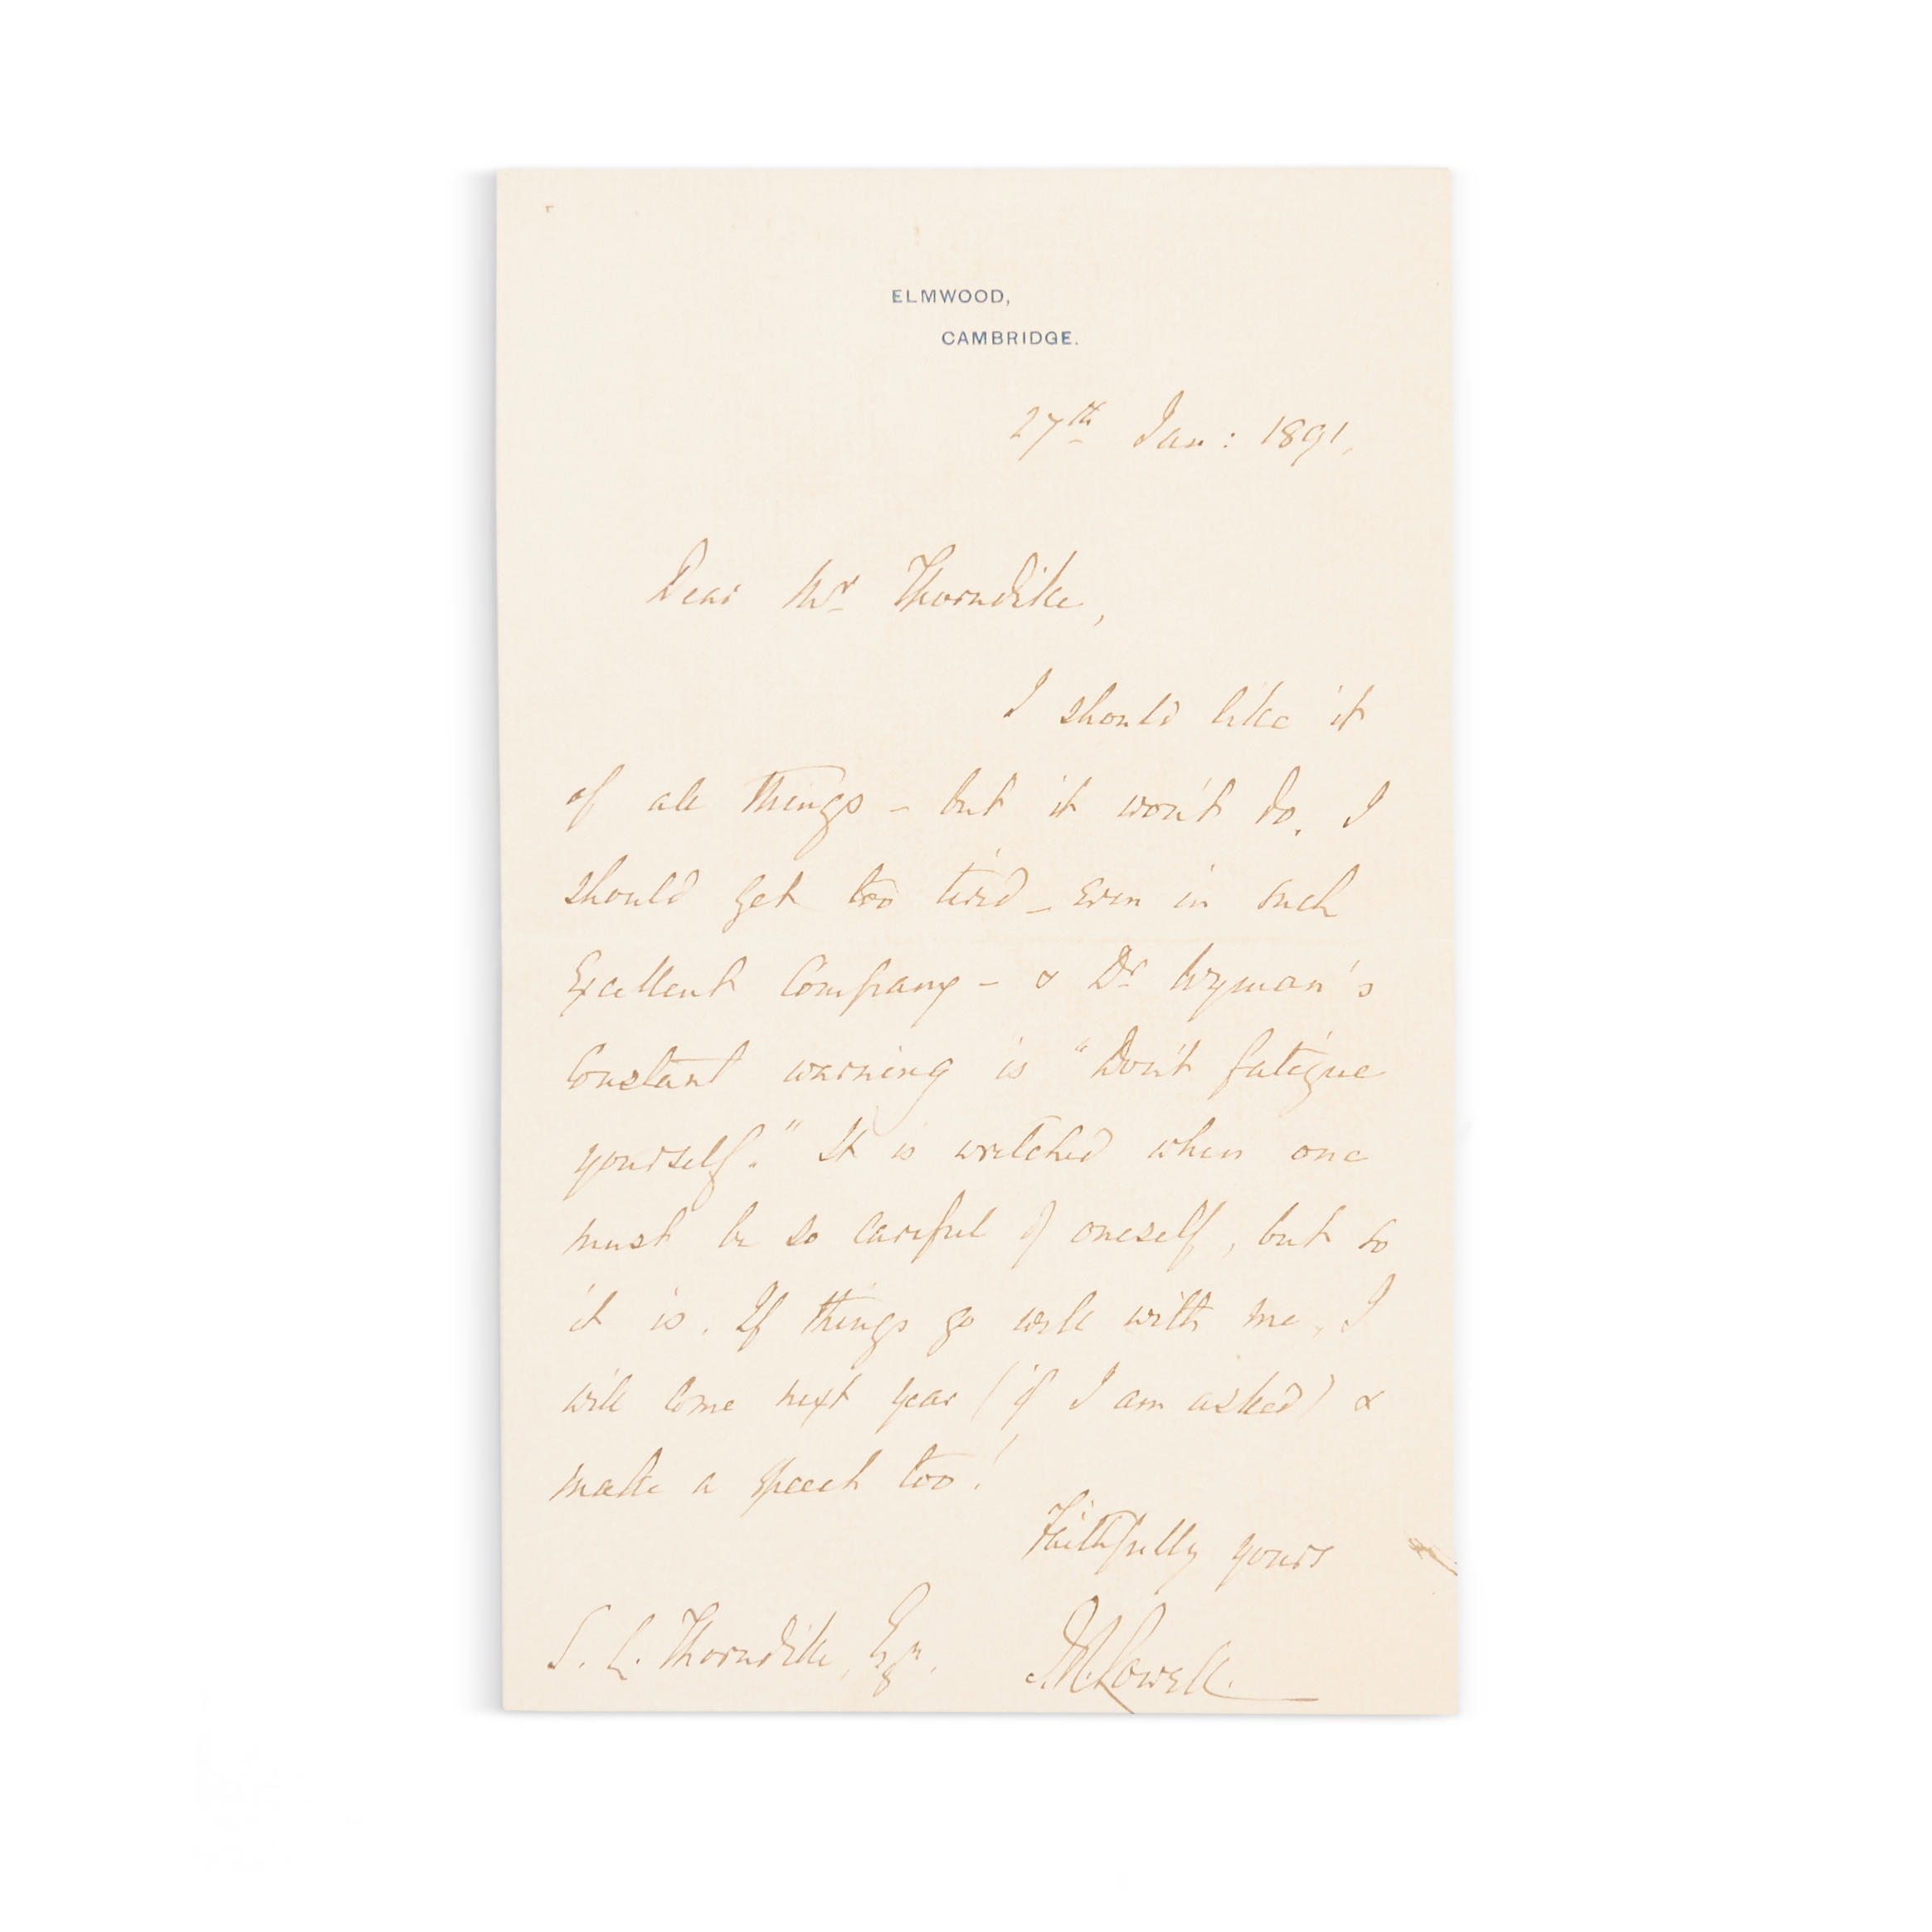 ELMWOOD,
CAMBRIDGE.
27th Jan: 1891.
Dear Mr Thorndike,
I should like it
of all things – but it won't do. I
should get too tired – even in such
excellent company – & Dr Wyman's
constant warning is "Don't fatigue
yourself." It is wretched when one
must be so careful of oneself, but so
it is. If things go well with me, I
will come next year (if I am asked) &
make a speech too!
Faithfully yours
S. L. Thorndike, Esqr.
J.R. Lowell.